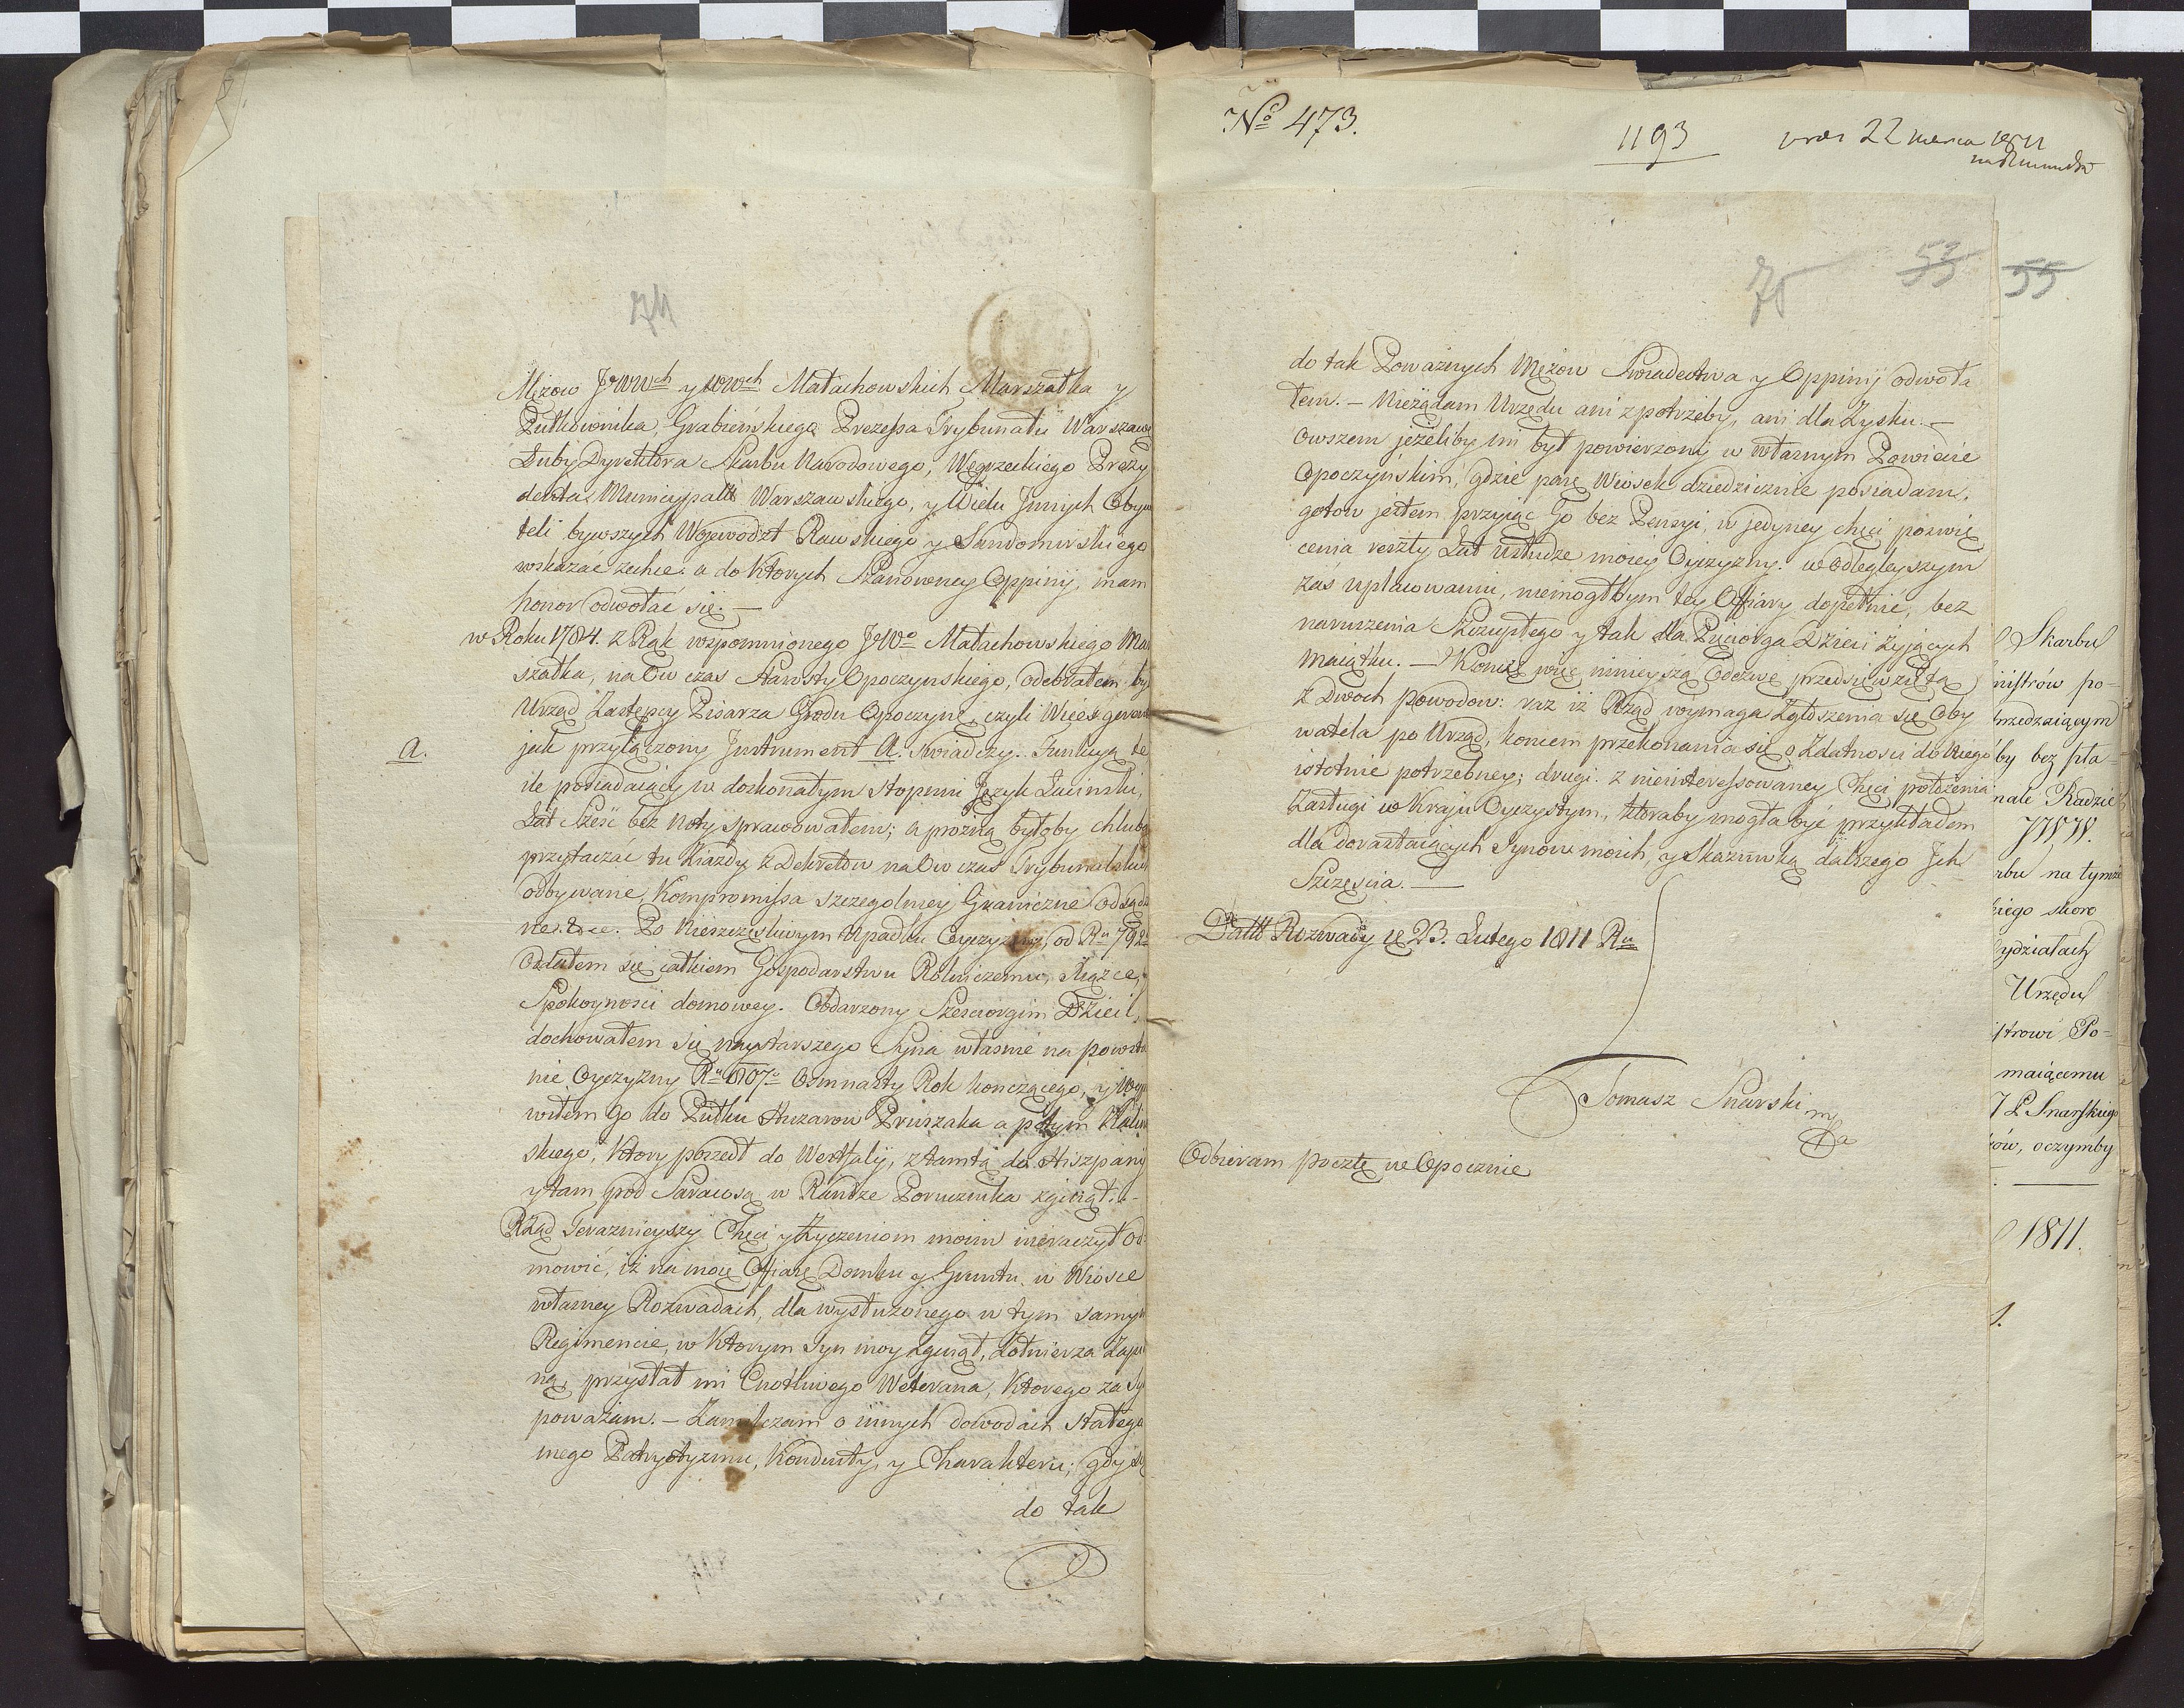 74
Mężow JWWch y WWch Małachowskich Marszałka y
Pułkownika, Grabieńskiego Prezessa Trybunału Warszaws
Łuby Dyrektora Skarbu Narodowego, Węgrzeckiego Prezy
denta Municypalt Warszawskiego, y Wielu Jnnych Obyw
teli bywszych Wojewodzt Rawskiego y Sandomirskiego
wskazać zechce. a do Ktorych Szanowney Oppinij, mam
honor odwołać się. —
w Roku 1784. z Rąk wzpomnionego JWo Małachowskiego Mar
szałka, na Ow czas Starosty Opoczynskiego, odebrałem by
Urząd Zastępcy Pisarza Grodu Opoczyn, czyli Vices gerens
A.
jak przyłączony Jnstrument A. Swiadczy. Funkcyą tę
ile posiadaiący w doskonałym stopniu Język Łacinski,
Lat Sześć bez Noty sprawowałem; a prożną byłoby chlubą
przytaczać tu Ziazdy z Dekretow na Ow czas Trybunalskich
odbywane, Kompromissa szczegolniey Graniczne odsądz
ne. &ce. Po Nieszczęsliwym Upadku Oyczyzny, od Ru 792
Oddałem się całkiem Gospodarstwu Rolniczemu, Xiążce, y
Spokoynosci domowey. Obdarzony Szesciorgim Dzieci,
dochowałem się naystarszego Syna własnie na powsta
nie Oyczyzny Ru 1807o Osmnasty Rok konczącego, y Wypra
wiłem go do Pułku Huzarow Pruszaka a potym Kalin
skiego, Ktory poszedł do Westfalij, ztamtą do Hiszpanij
y tam pod Saraiosą w Randze Porucznika zginął. —
Rząd Terazniejszy Chęci y Życzeniom moim nieraczył Od
mowić, iż na moię Ofiarę Domku y Gruntu w Wiosce
własney Rozwadach, dla wysłużonego w tym samym
Regimencie, w Ktorym Syn moy zginął, Żołnierza Zapi
ną, przysłał mi Cnotliwego Weterana, Ktorego za Sy
poważam. — Zamilczam o innych dowodach Stałego
mego Patryotyzmu, Kondiuty, y Charakteru; gdy się
do tak
No 473.
1193
22 marca 1811
75
53
55
do tak Poważnych Mężow Swiadectwa y Oppinij odwoła
łem. — Nieżądam Urzędu ani z potrzeby, ani dla Zysku. —
Owszem jeżeliby mi był powierzony w własnym Powiecie
Opoczyńskim, gdzie parę Wiosek dziedzicznie posiadam.
gotow jestem przyiąć Go bez Pensyi, w jedyney chęci poswię
cenia reszty Lat Usłudze moiey Oyczyzny. w Odległeyszym
zaś uplacowaniu, niemogłbym tey Ofiary dopełnić, bez
naruszenia Szczupłego y tak dla Pięciorga Dzieci żyjących
Maiątku. — Konczę więc ninieyszą Odezwę przedsięwziętą
z Dwoch Powodow: raz iż Rząd wymaga Zgłoszenia się Oby
watela po Urząd, koncem przekonania się o Zdatnosci do Niego
istotnie potrzebney; drugi. z nieinteressowaney Chęci położenia
Zasługi w Kraju Oyczystym, Ktoraby mogła być przykładem
dla dorastaiących Synow moich, y Skazuwką dalszego Jch
Szczęscia. —
Datt Rozwady d 23. Lutego 1811 Ru
Tomasz Snarski mp
Odbieram pocztę w Opocznie
Skarbu
nistrów po-
rzedzaiącym
by bez pła-
nale Radzie
JWW.
rbu na tymże
iego skoro
ydziałach
Urzędu
strowi Po-
maiącemu
J P. Snarskiego
ów, oczymby
1811.